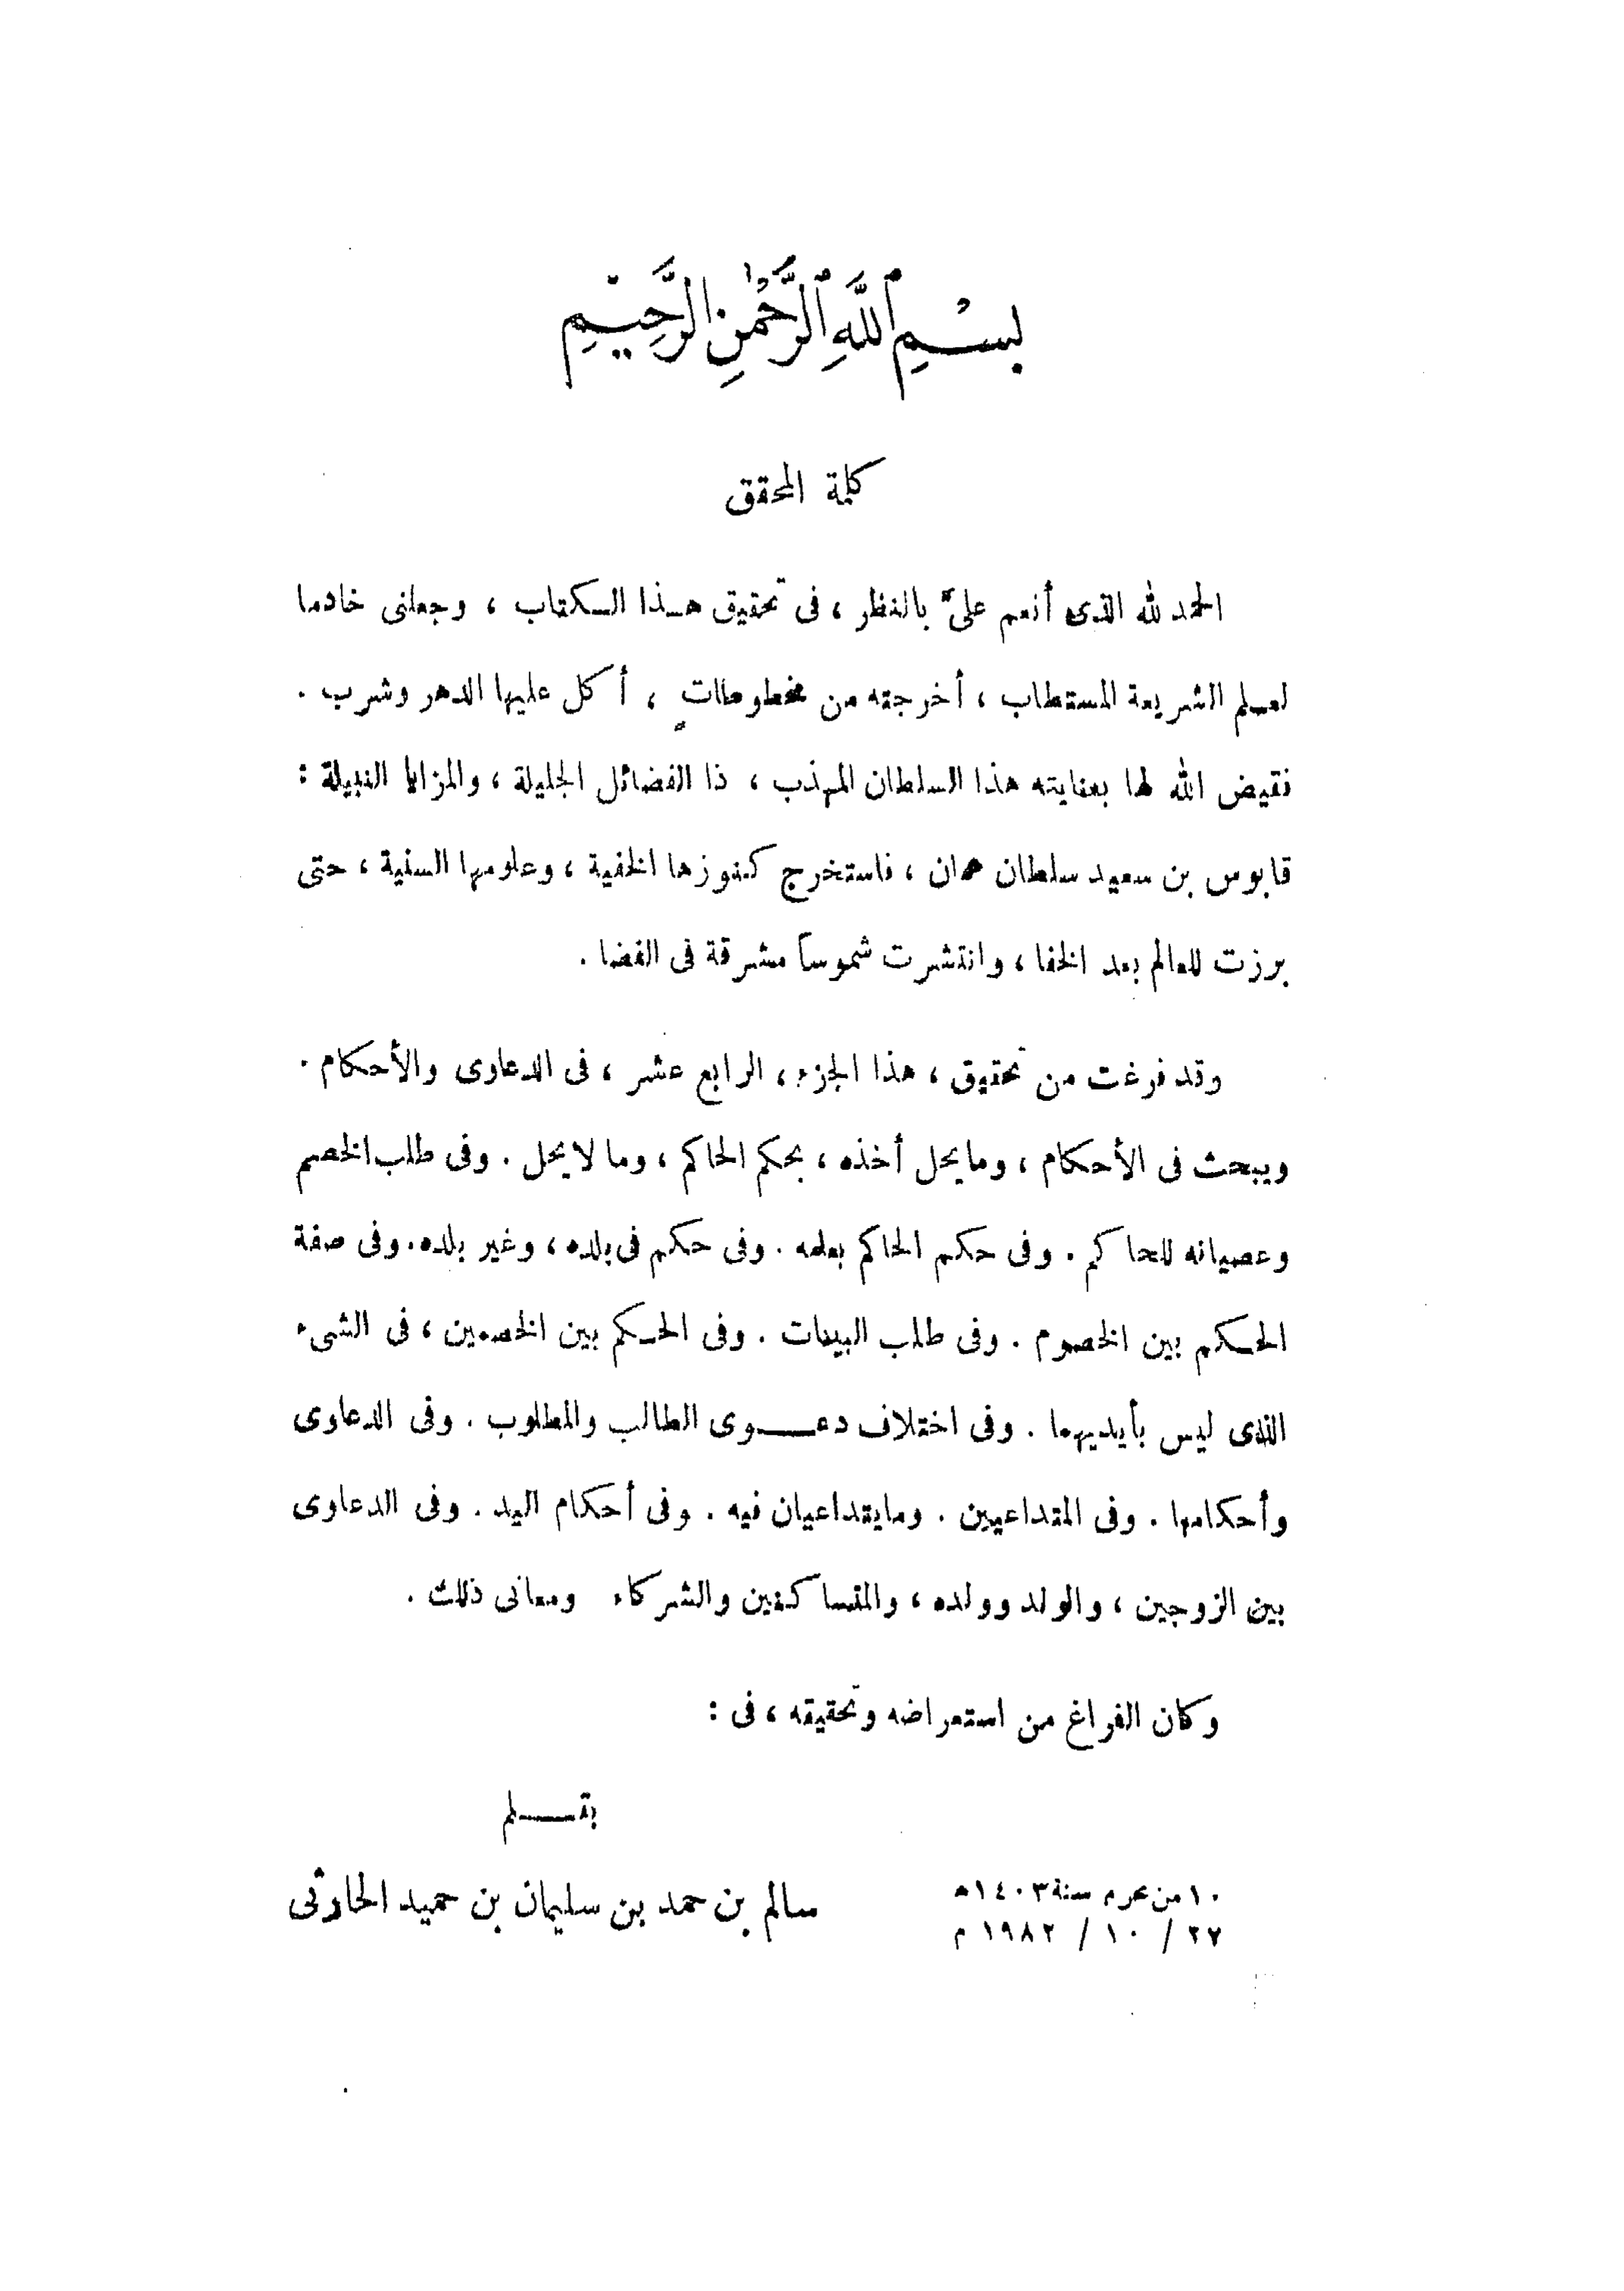 بِسْمِ ٱللَّهِ ٱلرَّحْمَٰنِ الرَّحِيمِ
كلمة المحقق
الحمد لله الذى أنعم علىّ بالنظر ، فى تحقيق هذا الكتاب ، وجعلنى خادما
لعلم الشريعة المستطاب ، أخرجته من مخطوطات ٍ ، أكل عليها الدهر وشرب .
فقيض الله لها بعنايته هذا السلطان المهذب ، ذا الفضائل الجليلة ، والمزايا النبيلة :
قابوس بن سعيد سلطان عمان ، فاستخرج كنوزها الخفية ، وعلومها السنية ، حتى
برزت للعالم بعد الخفا ، وانتشرت شموساً مشرقة فى الفضا .
وقد فرغت من تحقيق ، هذا الجزء ، الرابع عشر ، فى الدعاوى والأحكام .
ويبحث فى الأحكام ، وما يحل أخذه ، بحكم الحاكم ، وما لا يحل . وفى طلب الخصم
وعصيانه للحاكم . وفى حكم الحاكم بعلمه . وفى حكم فى بلده ، وغير بلده . وفى صفة
الحكم بين الخصوم . وفى طلب البينات . وفى الحكم بين الخصمين ، فى الشىء
الذى ليس بأيديهما . وفى اختلاف دعوى الطالب والمطلوب . وفى الدعاوى
وأحكامها . وفى المتداعيين . وما يتداعيان فيه . وفى أحكام اليد . وفى الدعاوى
بين الزوجين ، والولد وولده ، والمتساكنين والشركاء ومعانى ذلك .
وكان الفراغ من استعراضه وتحقيقه ، فى :
بقلم
١٠ من محرم سنة ١٤٠٣ هـ
سالم بن حمد بن سليمان بن حميد الحارثى
٢٧ / ١٠ / ١٩٨٢ م